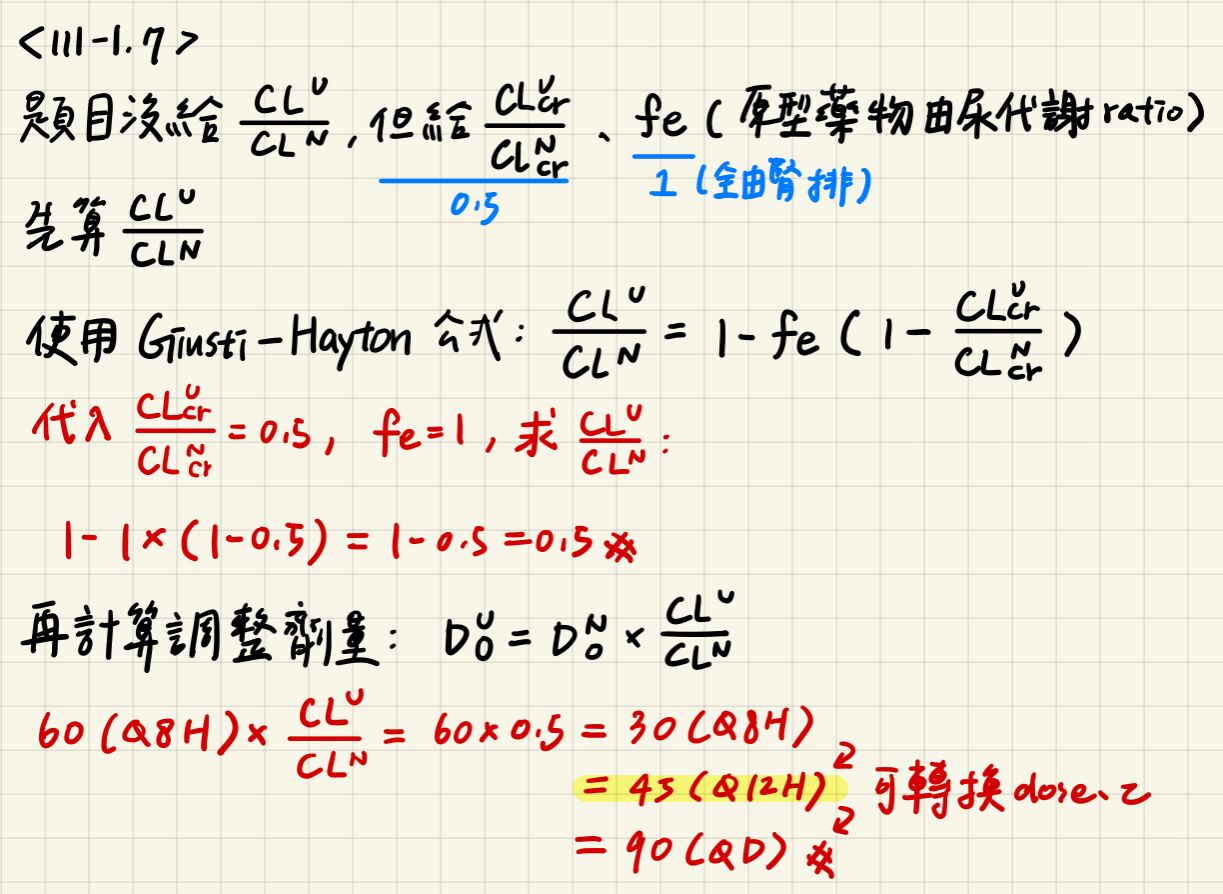 <111-1.7>
題目沒給 CL^U/CL^N, 但給 CL^U_cr/CL^N_cr、fe (原型藥物由尿代謝 ratio)
0.5 1 (全由腎排)
先算 CL^U/CL^N
使用 Giusti-Hayton 公式: CL^U/CL^N = 1 - fe (1 - CL^U_cr/CL^N_cr)
代入 CL^U_cr/CL^N_cr = 0.5, fe=1, 求 CL^U/CL^N:
1 - 1 × (1-0.5) = 1-0.5 = 0.5 ※
再計算調整劑量: D^U_0 = D^N_0 × CL^U/CL^N
60 (Q8H) × CL^U/CL^N = 60×0.5 = 30 (Q8H)
= 45 (Q12H) 可轉換 dose、τ
= 90 (QD) ※